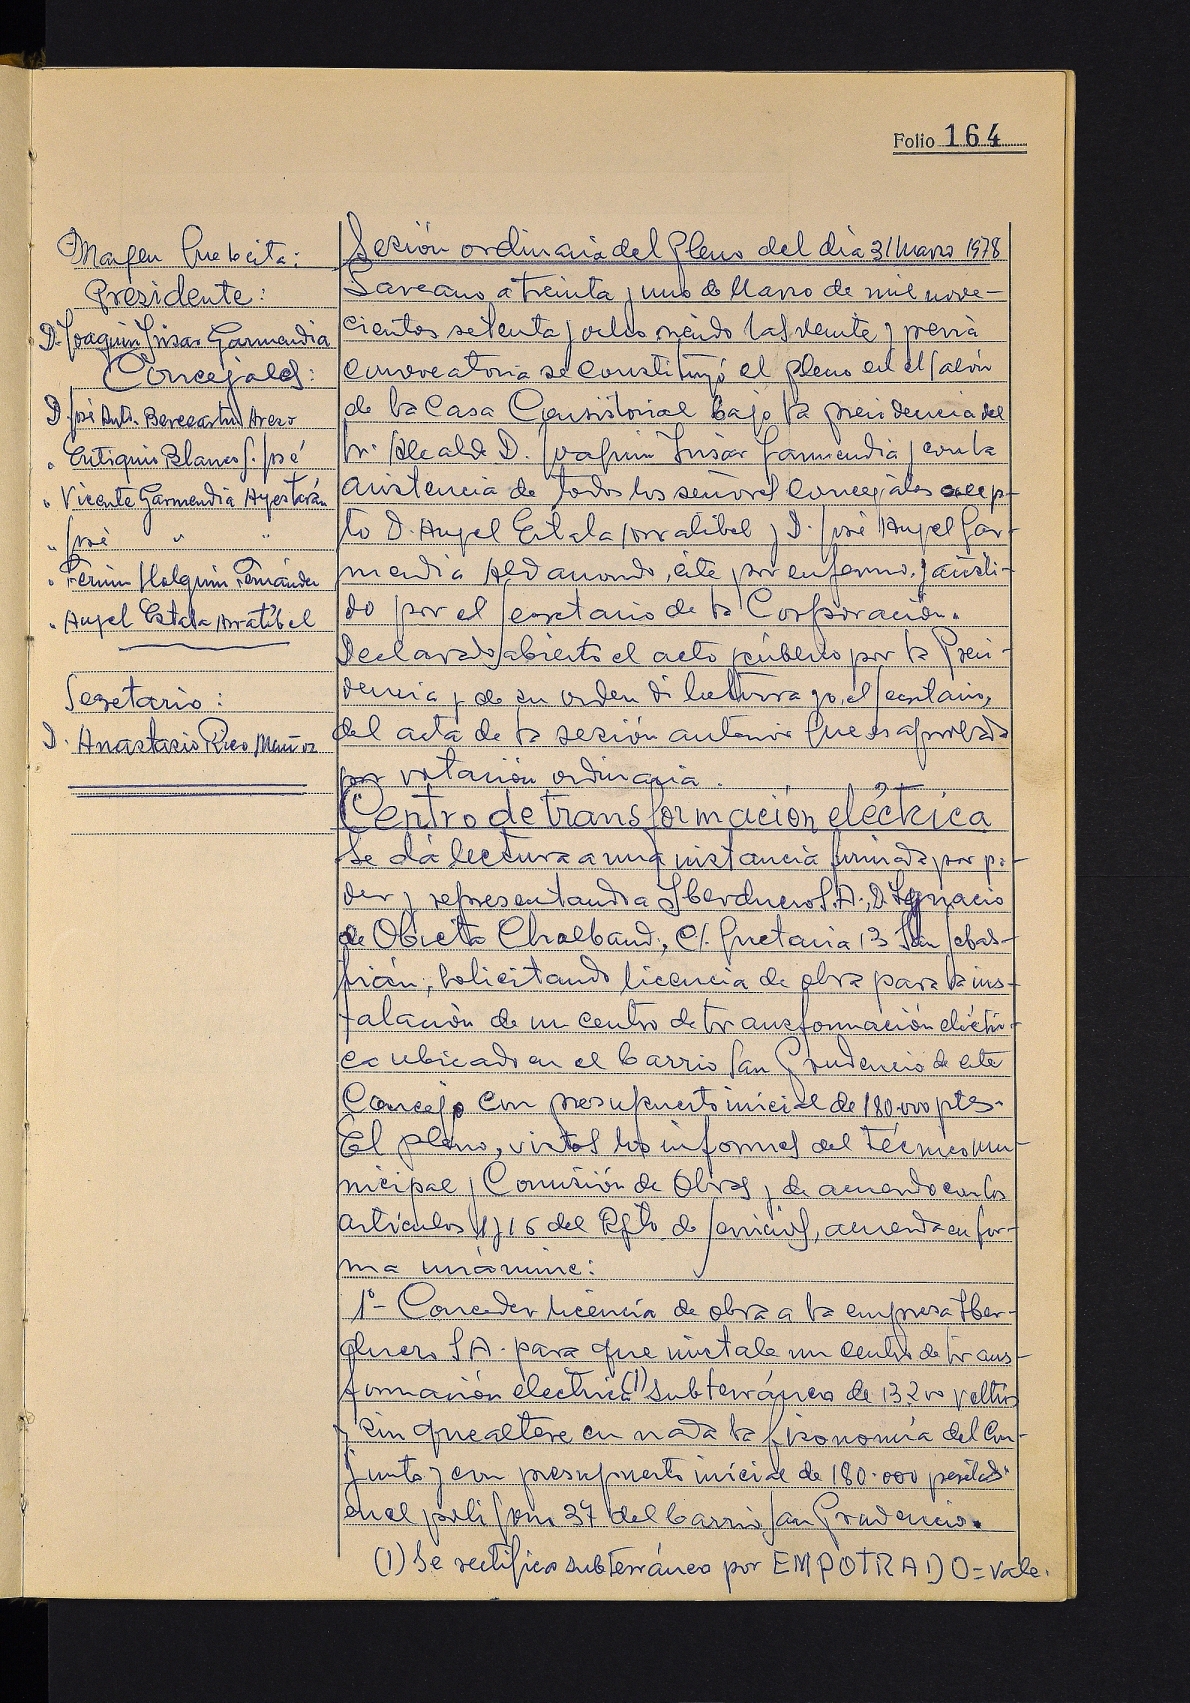 Folio 164
Margen que se cita:
Presidente:
D. Joaquín Insar Garmendia
Concejales:
D. José Ant. Bereciartu Arezo
" Eutiquio Blanco S. José
" Vicente Garmendia Ayestarán
" José " "
" Fermín Holguín Fernández
" Angel Estala Arratibel
Secretario:
D. Anastasio Rico Muñoz
Sesión ordinaria del Pleno del día 31 Marzo 1978
a treinta y uno de Marzo de mil nove-
cientos setenta y ocho siendo las veinte y previa
convocatoria se constituyó el pleno en el Salón
de la Casa Consistorial bajo la presidencia del
Sr. Alcalde D. Joaquín Insar Garmendia y con la
asistencia de todos los señores Concejales excep-
to D. Angel Estala Arratibel y D. José Angel Gar-
mendia Aldamondo, éste por enfermo, y asisti-
do por el Secretario de la Corporación.
Declarado abierto el acto público por la Presi-
dencia y de su orden di lectura yo, el Secretario,
del acta de la sesión anterior que es aprobada
por votación ordinaria.
Centro de transformación eléctrica
Se dá lectura a una instancia firmada por po-
der y representando a Iberduero S.A., D. Ignacio
de Obieta Chalbaud, C/. Guetaria 13 San Sebas-
tián, solicitando licencia de obra para la ins-
talación de un centro de transformación eléctri-
ca ubicado en el barrio San Prudencio de este
Concejo con presupuesto inicial de 180.000 ptas.
El pleno, vistos los informes del técnico mu-
nicipal y Comisión de Obras y de acuerdo con los
artículos 1 y 16 del Rgto de Servicios, acuerda en for-
ma unánime:
1º- Conceder licencia de obra a la empresa Iber-
duero S A. para que instale un centro de trans-
formación eléctrica (1) subterráneo de 13.200 voltios
y sin que altere en nada la fisonomía del Con-
junto y con presupuesto inicial de 180.000 pesetas
en el polígono 37 del barrio San Prudencio.
(1) Se rectifica subterráneo por EMPOTRADO = Vale.